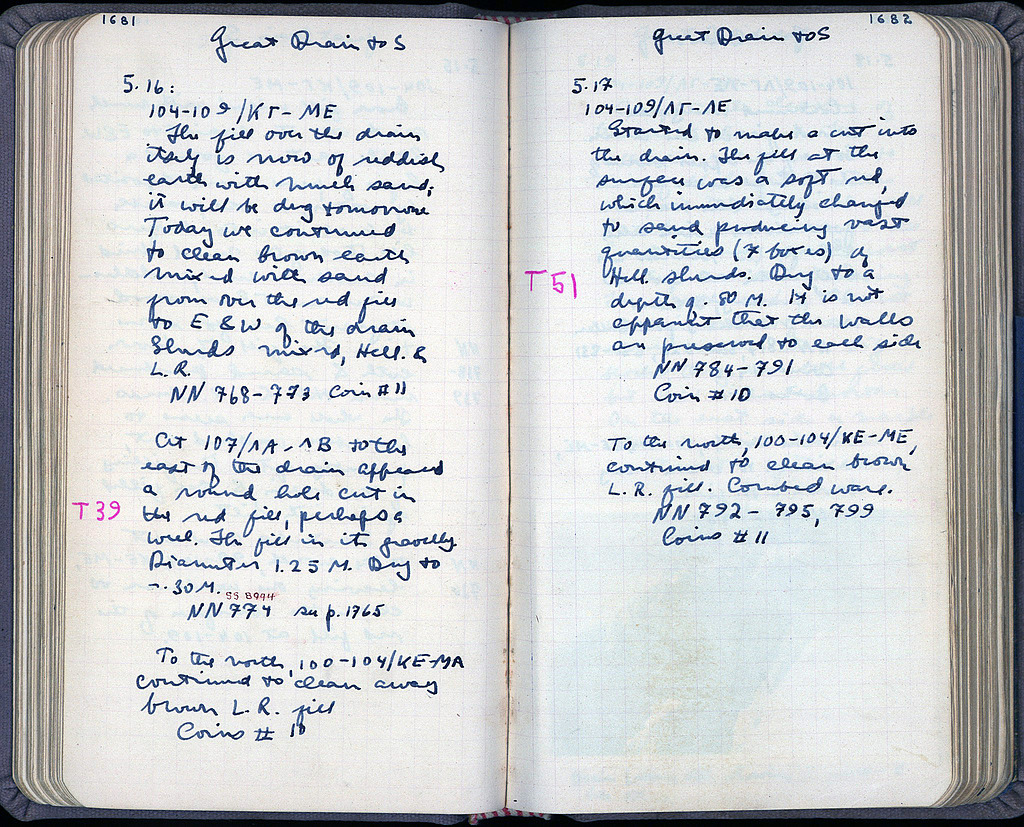 1681
Great Drain to S
5.16:
104-109/ΚΓ-ΜΕ
The fill over the drain
itself is now of reddish
earth with much sand;
it will be dug tomorrow
Today we continued
to clean brown earth
mixed with sand
from over the red fill
to E & W of the drain
Sherds mixed, Hell. &
L.R.
NN 768-773 Coin #11
At 107/ΛΑ-ΛΒ to the
east of the drain appeared
a round hole cut in
T39 the red fill, perhaps a
well. The fill in it gravelly
Diameter 1.25 M. Dug to
-.30 M.
SS 8944
NN 774 see p. 1765
To the north, 100-104/ΚΕ-ΜΑ
continued to clean away
brown L.R. fill
Coins # 10
1682
Great Drain to S
5.17
104-109/ΛΓ-ΛΕ
Started to make a cut into
the drain. The fill at the
surface was a soft red,
which immediately changed
to sand producing vast
quantities (7 boxes) of
T51 Hell. sherds. Dug to a
depth of .80 M. It is not
apparent that the walls
are preserved to each side
NN 784-791
Coin # 10
To the north, 100-104/ΚΕ-ΜΕ,
continued to clean brown
L.R. fill. Combed ware.
NN 792-795, 799
Coins # 11